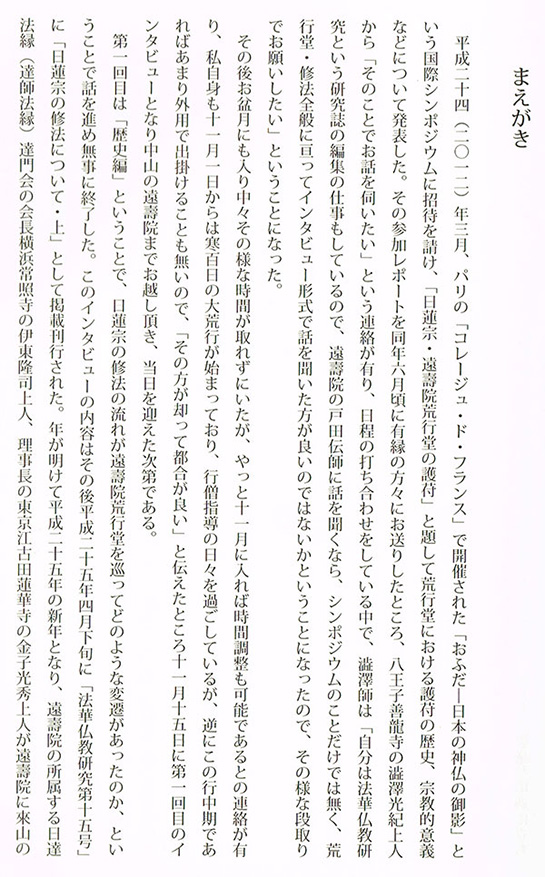 まえがき
平成二十四（二〇一二）年三月、パリの「コレージュ・ド・フランス」で開催された「おふだ―日本の神仏の御影」と
いう国際シンポジウムに招待を請け、「日蓮宗・遠壽院荒行堂の護符」と題して荒行堂における護符の歴史、宗教的意義
などについて発表した。その参加レポートを同年六月頃に有縁の方々にお送りしたところ、八王子善龍寺の澁澤光紀上人
から「そのことでお話を伺いたい」という連絡が有り、日程の打ち合わせをしている中で、澁澤師は「自分は法華仏教研
究という研究誌の編集の仕事もしているので、遠壽院の戸田伝師に話を聞くなら、シンポジウムのことだけでは無く、荒
行堂・修法全般に亘ってインタビュー形式で話を聞いた方が良いのではないかということになったので、その様な段取り
でお願いしたい」ということになった。
その後お盆月にも入り中々その様な時間が取れずにいたが、やっと十一月に入れば時間調整も可能であるとの連絡が有
り、私自身も十一月一日からは寒百日の大荒行が始まっており、行僧指導の日々を過ごしているが、逆にこの行中期であ
ればあまり外用で出掛けることも無いので、「その方が却って都合が良い」と伝えたところ十一月十五日に第一回目のイ
ンタビューとなり中山の遠壽院までお越し頂き、当日を迎えた次第である。
第一回目は「歴史編」ということで、日蓮宗の修法の流れが遠壽院荒行堂を巡ってどのような変遷があったのか、とい
うことで話を進め無事に終了した。このインタビューの内容はその後平成二十五年四月下旬に「法華仏教研究第十五号」
に「日蓮宗の修法について・上」として掲載刊行された。年が明けて平成二十五年の新年となり、遠壽院の所属する日達
法縁（達師法縁）達門会の会長横浜常照寺の伊東隆司上人、理事長の東京江古田蓮華寺の金子光秀上人が遠壽院に來山の